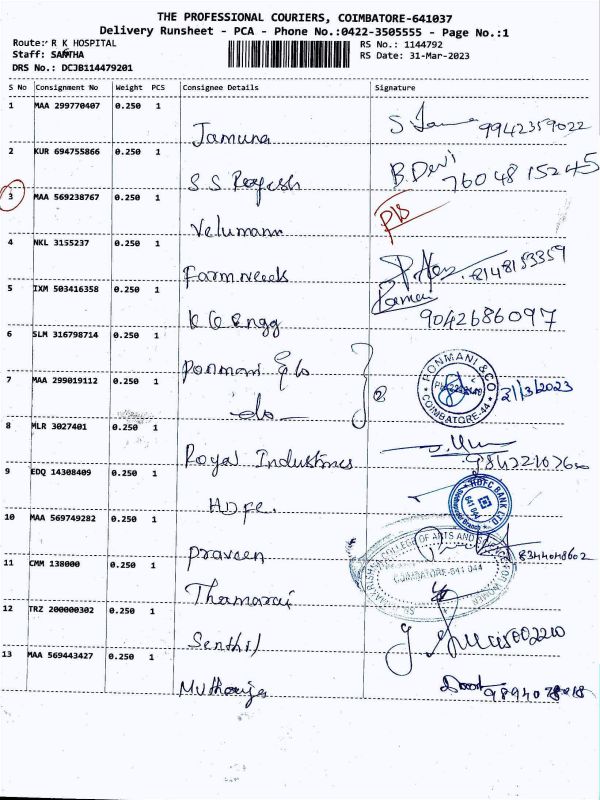 THE PROFESSIONAL COURIERS, COIMBATORE-641037
Delivery Runsheet - PCA - Phone No.:0422-3505555 - Page No.:1
Route: R K HOSPITAL
RS No.: 1144792
Staff: SANTHA
RS Date: 31-Mar-2023
DRS No.: DCJB114479201
S No Consignment No Weight PCS Consignee Details Signature
1 MAA 299770407 0.250 1
Jamuna 9942359022
2 KUR 694755866 0.250 1
B. Devi
S S Rajesh 7604815245
3 MAA 569238767 0.250 1
Velumani
4 NKL 3155237 0.250 1
Farm needs 8148153359
5 IXM 503416358 0.250 1
K G Engg 9042686097
6 SLM 316798714 0.250 1
Ponmani & Co
7 MAA 299019112 0.250 1
RONMANI & CO
COIMBATORE-44
21/3/2023
do
8 MLR 3027401 0.250 1
Royal Industries
9 EDQ 14308409 0.250 1
HDFC BANK LTD
H.D.F.C.
10 MAA 569749282 0.250 1
COLLEGE OF ARTS AND SCIENCE FOR WOMEN
Praveen 8344048602
11 CMM 138000 0.250 1
COIMBATORE-641 044
Thamarai
12 TRZ 200000302 0.250 1
Senthil
13 MAA 569443427 0.250 1